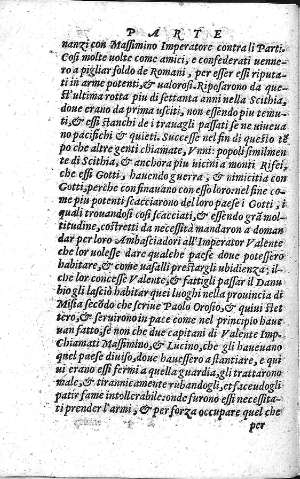 PARTE
nanzi con Massimino Imperatore contra li Parti.
Così molte volte come amici, e confederati uenne-
ro a pigliar soldo de Romani, per esser essi riputa-
ti in arme potenti, & ualorosi. Riposarono da que-
st'ultima rotta piu di settanta anni nella Scithia,
doue erano da prima usciti, non essendo piu temu-
ti, & essi stanchi de i trauagli passati se ne uiueua
no pacifichi & quieti. Successe nel fin di questo tē
po che altre genti chiamate, Vnni: popoli similmen
te di Scithia, & anchora piu uicini a monti Rifei,
che essi Gotti, hauendo guerra, & nimicitia con
Gotti, perche confinauano con esso loro: nel fine co
me piu potenti scacciarono del loro paese i Gotti, i
quali trouandosi cosi scacciati, & essendo grā mol-
titudine, costretti da necessità mandaron a doman
dar per loro Ambasciadori all'Imperator Valente
che lor uolesse dare qualche paese doue potessero
habitare, & come uasalli prestargli ubidienza; il-
che lor concesse Valente, & fattigli passar il Danu
bio gli lasciò habitar quei luoghi nella prouincia di
Misia secōdo che scriue Paolo Orosio, & quiui stet
tero, & seruirono in pace come nel principio haue
uan fatto, se non che due capitani di Valente Imp.
Chiamati Massimino, & Lucino, che gli haueuano
quel paese diuiso, doue hauessero a stantiare, e qui
ui erano essi fermi a quella guardia, gli trattarono
male, & tirannicamente rubandogli, et facendogli
patir fame intollerabile: onde furono essi necessita-
ti prender l'armi, & per forza occupare quel che
per